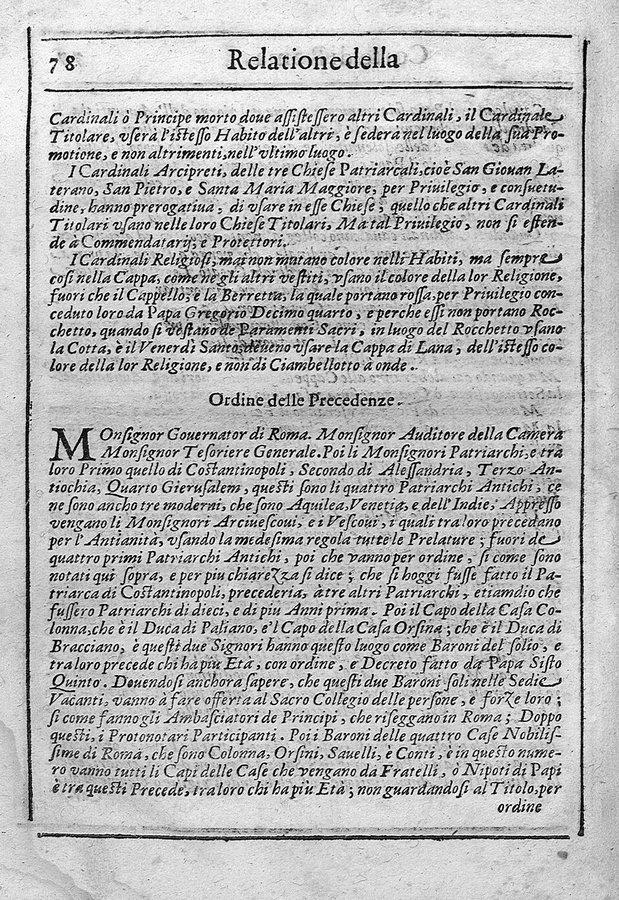 78
Relatione della
Cardinali ò Principe morto doue assistessero altri Cardinali, il Cardinale
Titolare, vserà l'istesso Habito dell'altri, è sederà nel luogo della sua Pro-
motione, e non altrimenti, nell'vltimo luogo.
I Cardinali Arcipreti, delle tre Chiese Patriarcali, cioè San Giouan La-
terano, San Pietro, e Santa Maria Maggiore, per Priuilegio, e consuetu-
dine, hanno prerogatiua, di vsare in esse Chiese; quello che altri Cardinali
Titolari vsano nelle loro Chiese Titolari, Ma tal Priuilegio, non si esten-
de à Commendatarij, e Protettori.
I Cardinali Religiosi, mai non mutano colore nelli Habiti, ma sempre
così nella Cappa, come ne gli altri vestiti, vsano il colore della lor Religione,
fuori che il Cappello, è la Berretta, la quale portano rossa, per Priuilegio con-
ceduto loro da Papa Gregorio Decimo quarto, e perche essi non portano Roc-
chetto, quando si vestano de Paramenti Sacri, in luogo del Rocchetto vsano
la Cotta, è il Venerdì Santo, deueno vsare la Cappa di Lana, dell'istesso co-
lore della lor Religione, e non di Ciambellotto à onde.
Ordine delle Precedenze.
MOnsignor Gouernator di Roma. Monsignor Auditore della Camera
Monsignor Tesoriere Generale. Poi li Monsignori Patriarchi, e tra
loro Primo quello di Costantinopoli, Secondo di Alessandria, Terzo An-
tiochia, Quarto Gierusalem, questi sono li quattro Patriarchi Antichi, ce
ne sono ancho tre moderni, che sono Aquilea, Venetia, e dell'Indie, Appresso
vengano li Monsignori Arciuescoui, e i Vescoui, i quali tra loro precedano
per l'Antianità, vsando la medesima regola tutte le Prelature; fuori de
quattro primi Patriarchi Antichi, poi che vanno per ordine, si come sono
notati qui sopra, e per piu chiarezza si dice; che si hoggi fusse fatto il Pa-
triarca di Costantinopoli, precederia, à tre altri Patriarchi, etiamdio che
fussero Patriarchi di dieci, e di più Anni prima. Poi il Capo della Casa Co-
lonna, che è il Duca di Paliano, e'l Capo della Casa Orsina; che è il Duca di
Bracciano, è questi due Signori hanno questo luogo come Baroni del solio, e
tra loro precede chi hà più Età, con ordine, e Decreto fatto da Papa Sisto
Quinto. Douendosi anchora sapere, che questi due Baroni soli nelle Sedie
Vacanti, vanno à fare offerta al Sacro Collegio delle persone, e forze loro;
si come fanno gli Ambasciatori de Principi, che riseggano in Roma; Doppo
questi, i Protonotari Participanti. Poi i Baroni delle quattro Case Nobilis-
sime di Roma, che sono Colonna, Orsini, Sauelli, e Conti, è in questo nume-
ro vanno tutti li Capi delle Case che vengano da Fratelli, ò Nipoti di Papi
è tra questi Precede, tra loro chi ha più Età; non guardandosi al Titolo, per
ordine